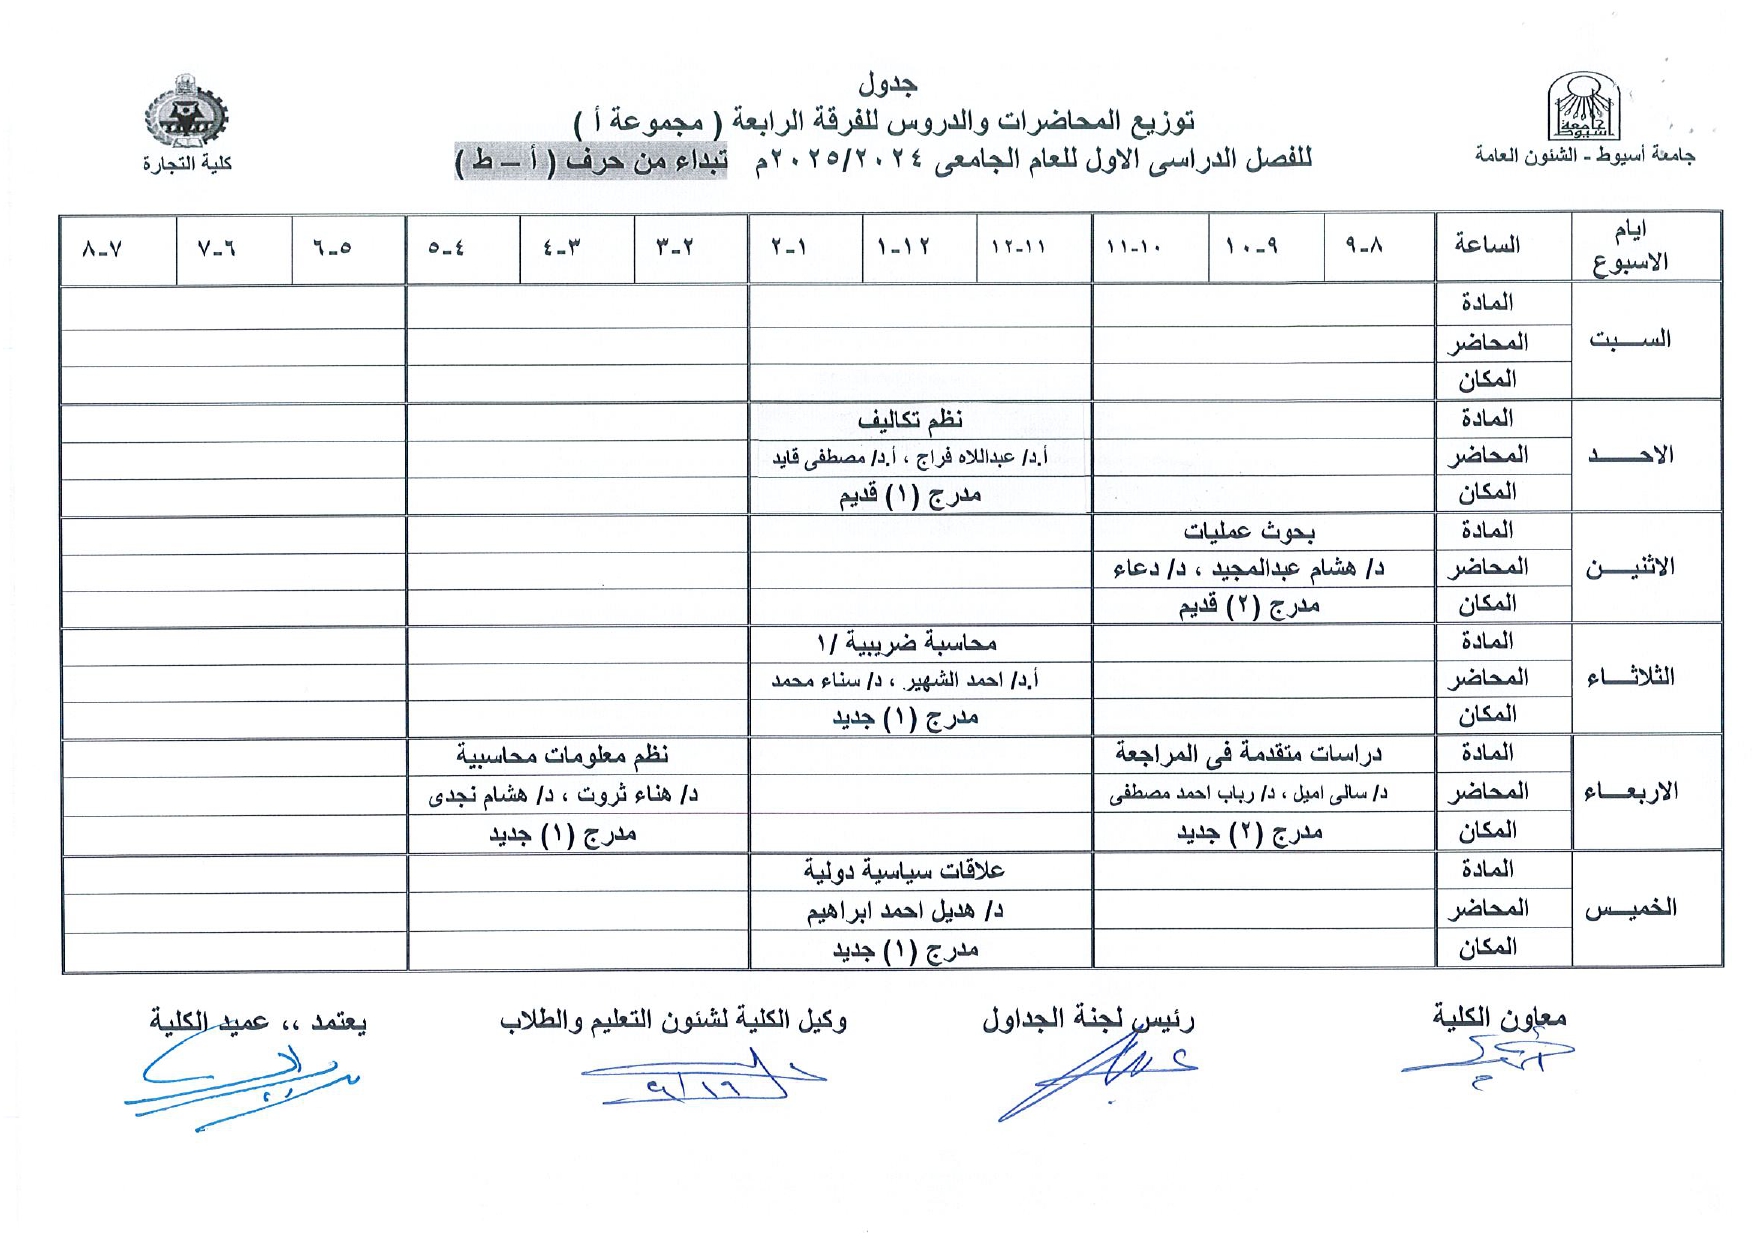 جدول
توزيع المحاضرات والدروس للفرقة الرابعة ( مجموعة أ )
للفصل الدراسى الاول للعام الجامعى ٢٠٢٥/٢٠٢٤م تبداء من حرف ( أ – ط )
جامعة أسيوط
جامعة أسيوط - الشئون العامة
كلية التجارة
ايام الاسبوع الساعة ٨-٩ ٩-١٠ ١٠-١١ ١١-١٢ ١٢-١ ١-٢ ٢-٣ ٣-٤ ٤-٥ ٥-٦ ٦-٧ ٧-٨
السبت
المادة
المحاضر
المكان
الاحد
المادة نظم تكاليف
المحاضر أ.د/ عبداللاه فراج ، أ.د/ مصطفى قايد
المكان مدرج (١) قديم
الاثنين
المادة بحوث عمليات
المحاضر د/ هشام عبدالمجيد ، د/ دعاء
المكان مدرج (٢) قديم
الثلاثاء
المادة محاسبة ضريبية /١
المحاضر أ.د/ احمد الشهير ، د/ سناء محمد
المكان مدرج (١) جديد
الاربعاء
المادة دراسات متقدمة فى المراجعة نظم معلومات محاسبية
المحاضر د/ سالى اميل ، د/ رباب احمد مصطفى د/ هناء ثروت ، د/ هشام نجدى
المكان مدرج (٢) جديد مدرج (١) جديد
الخميس
المادة علاقات سياسية دولية
المحاضر د/ هديل احمد ابراهيم
المكان مدرج (١) جديد
معاون الكلية رئيس لجنة الجداول وكيل الكلية لشئون التعليم والطلاب يعتمد ،، عميد الكلية
٩/١٦